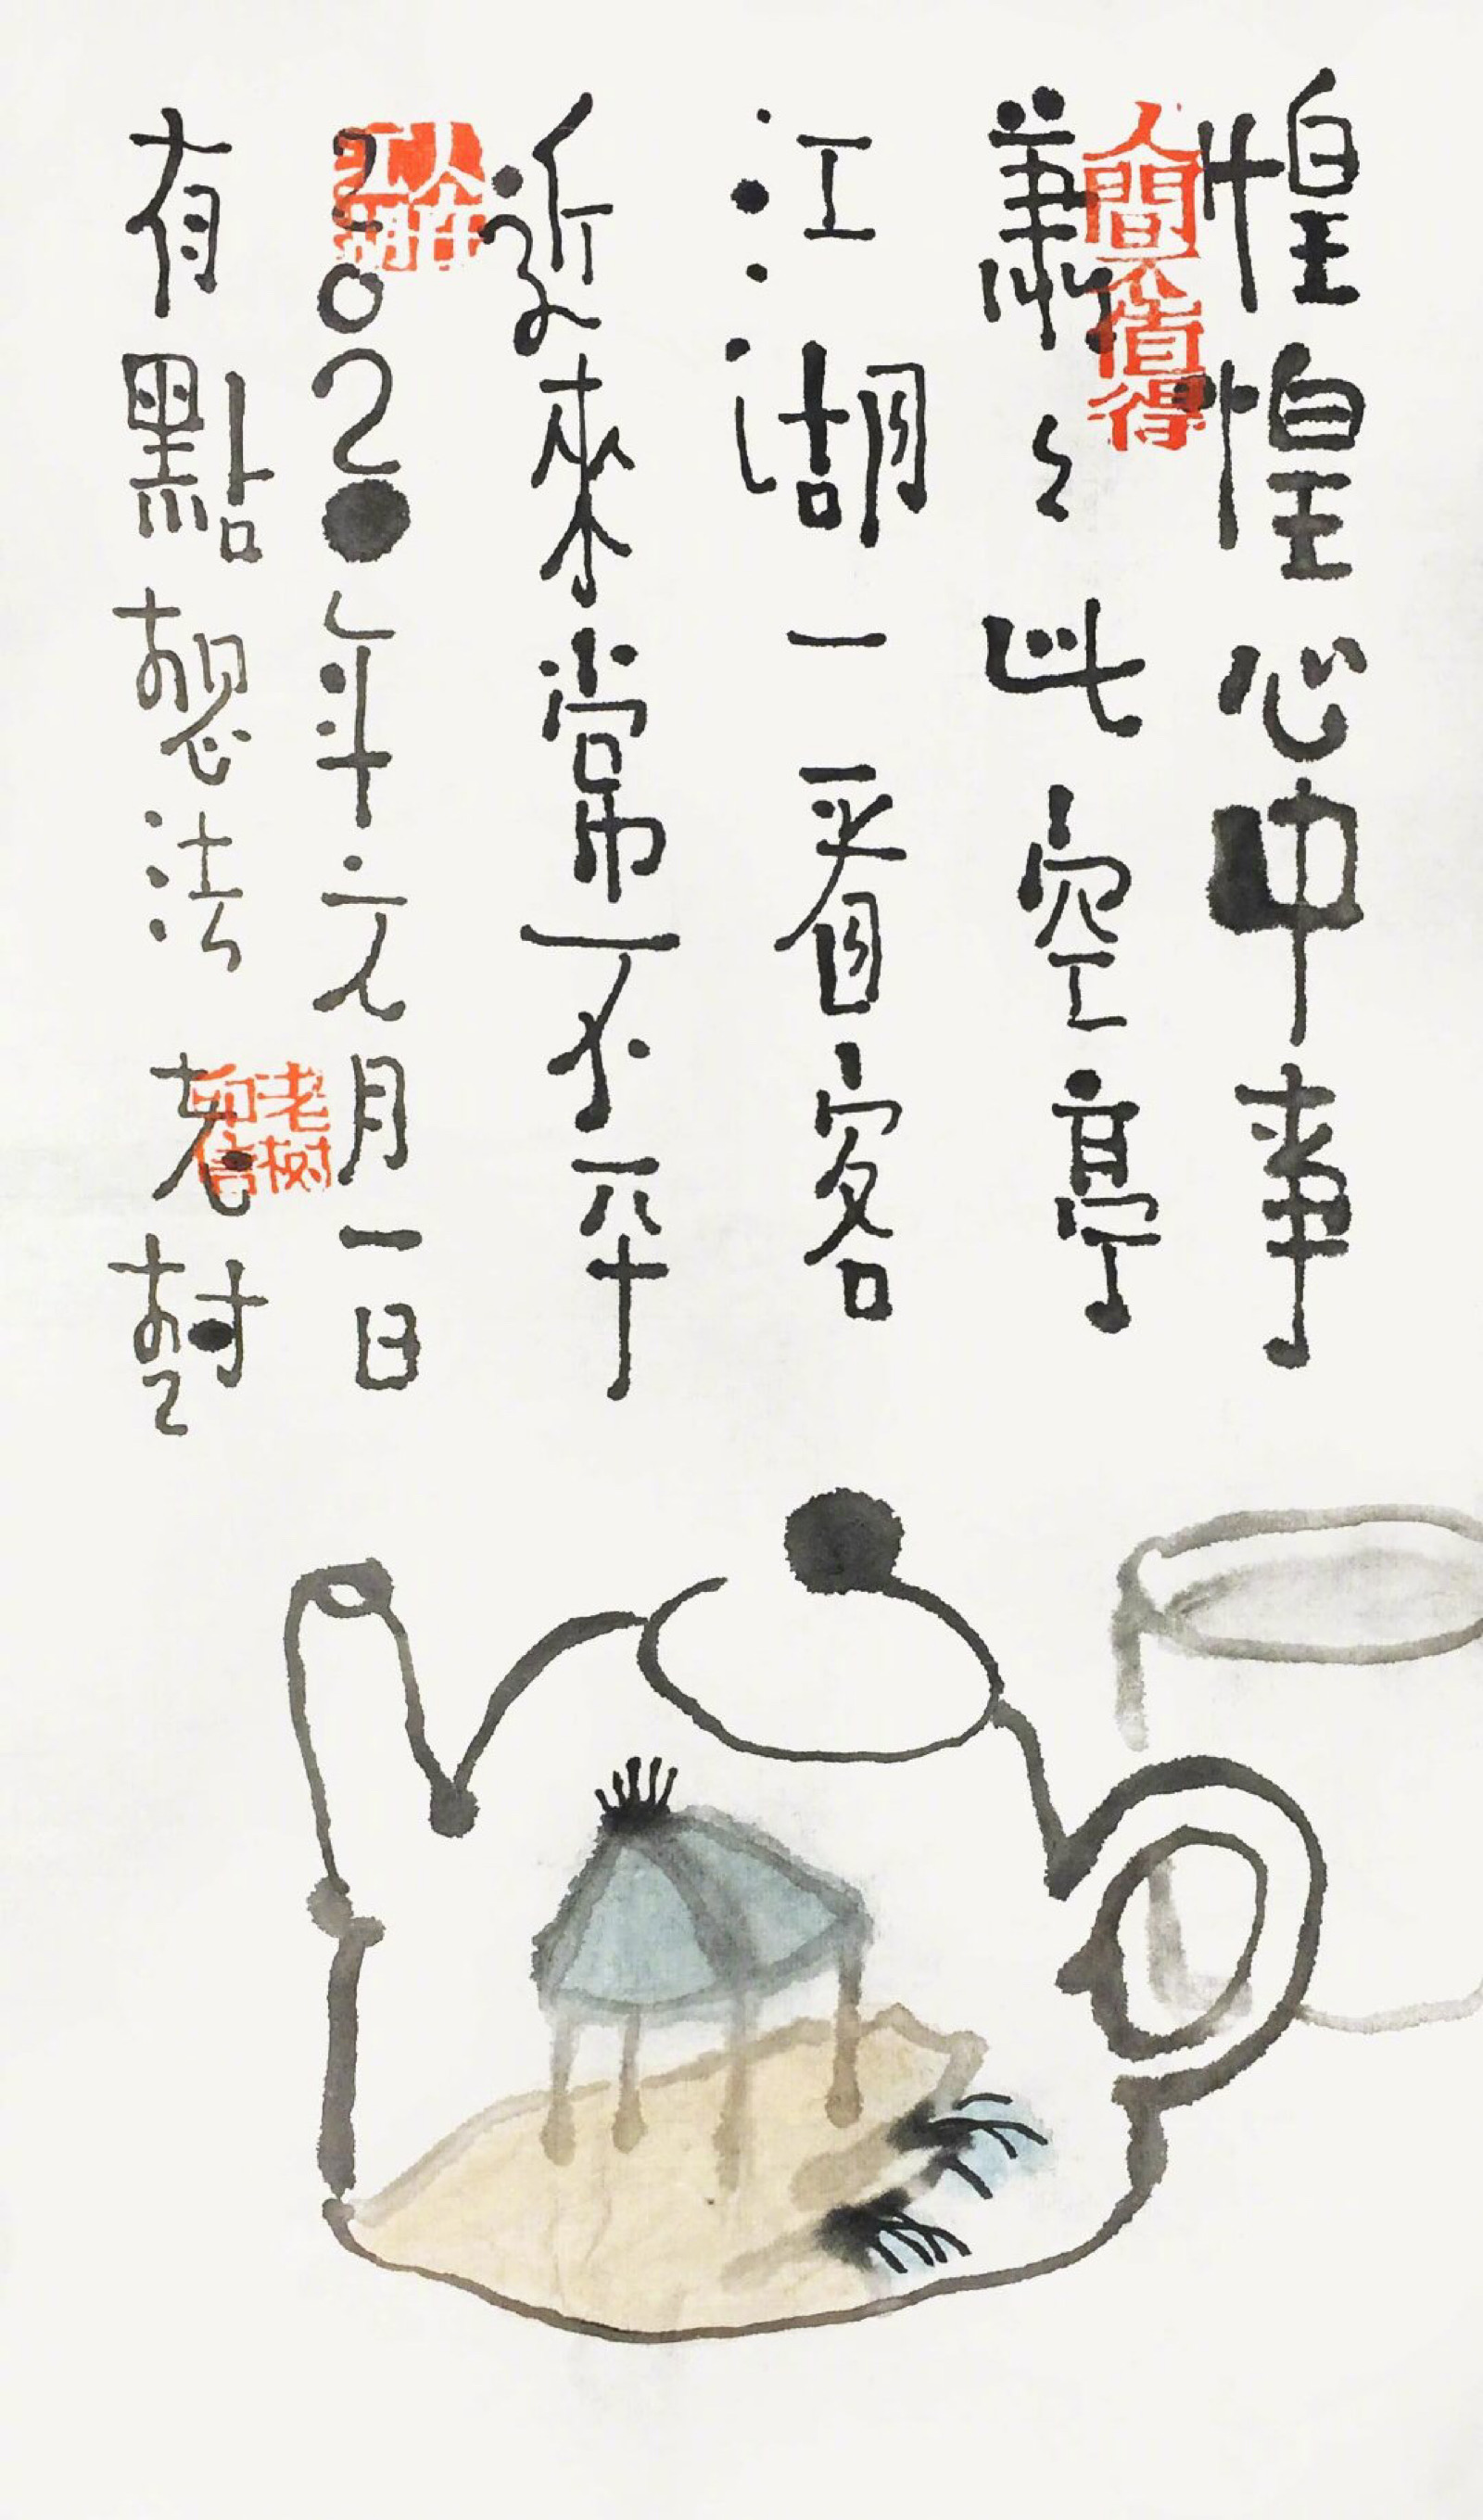 惶惶心中事
蕭々此空亭
江湖一看客
近來常不平
2020年元月一日
有點想法 老樹
人間不值得
人在江湖
老树印信